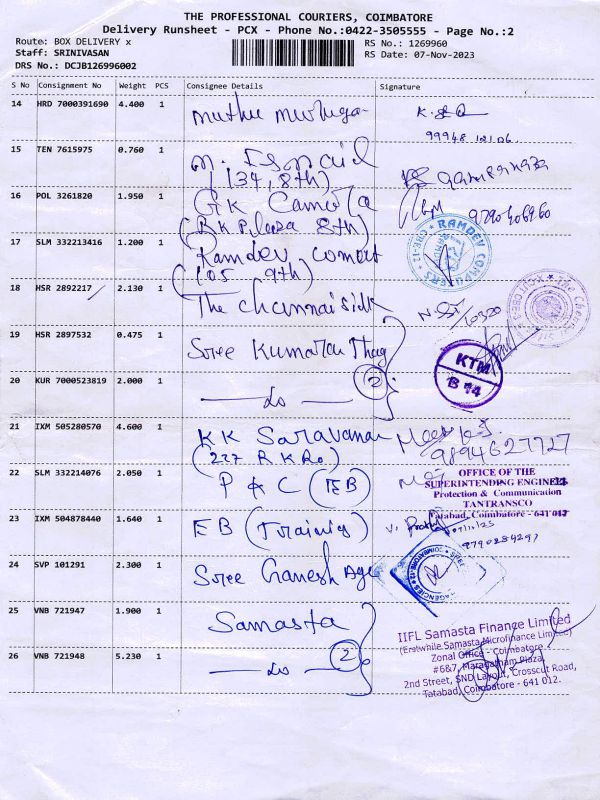 THE PROFESSIONAL COURIERS, COIMBATORE
Delivery Runsheet - PCX - Phone No.:0422-3505555 - Page No.:2
Route: BOX DELIVERY x
RS No.: 1269960
Staff: SRINIVASAN
RS Date: 07-Nov-2023
DRS No.: DCJB126996002
S No Consignment No Weight PCS Consignee Details Signature
14 HRD 7000391690 4.400 1 Muthu Muruga
99948
15 TEN 7615975 0.760 1 M. Ismail
(134, 8th)
16 POL 3261820 1.950 1 GK Camera
(RK Plaza 8th) 9790406960
17 SLM 332213416 1.200 1 Ramdev comput
(105 9th)
RAMDEV COMPUTERS
18 HSR 2892217 2.130 1 The chennai silk
19 HSR 2897532 0.475 1 Sree Kumaran Thag
KTM
20 KUR 7000523819 2.000 1 — Do — 2
21 IXM 505280570 4.600 1 KK Saravana
(227 R K Ro) 9894627727
22 SLM 332214076 2.050 1 P & C (EB)
OFFICE OF THE
SUPERINTENDING ENGINEER
Protection & Communication
TANTRANSCO
Tatabad, Coimbatore - 641 012
23 IXM 504878440 1.640 1 EB (Training)
9790284297
24 SVP 101291 2.300 1 Sree Ganesh Age
25 VNB 721947 1.900 1 Samasta
26 VNB 721948 5.230 1 — Do — 2
IIFL Samasta Finance Limited
(Erstwhile Samasta Microfinance Limited)
Zonal Office - Coimbatore
#6&7, Maragatham Plaza,
2nd Street, SND Layout, Crosscut Road,
Tatabad, Coimbatore - 641 012.